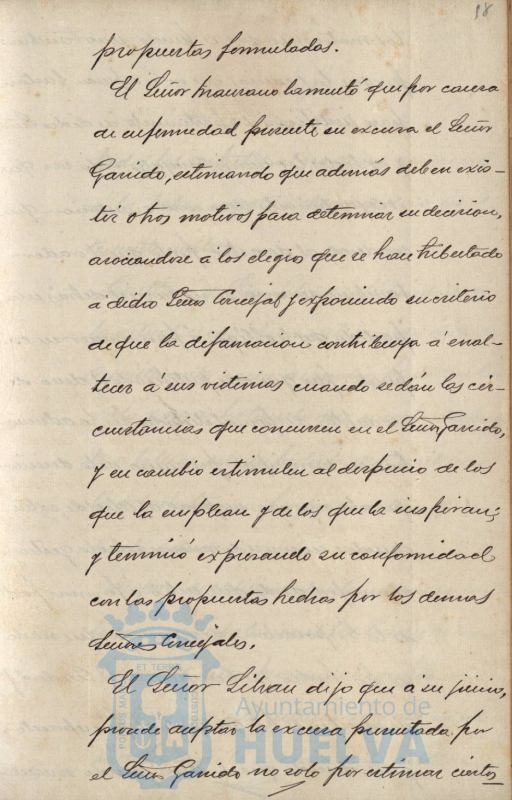 18
propuestas formuladas.
El Señor Manzano lamentó que por causa
de enfermedad presente su excusa el Señor
Garrido, estimando que además deben exis-
tir otros motivos para determinar su decision,
asociandose á los elogios que se han tributado
á dicho Señor Concejal y exponiendo su criterio
de que la difamacion contribuya á enal-
tecer á sus victimas cuando se dán las cir-
cunstancias que concurren en el Señor Garrido,
y en cambio estimulen al desprecio de los
que la emplean y de los que la inspiran;
y terminó expresando su conformidad
con las propuestas hechas por los demas
Señores Concejales.
El Señor                dijo que á su juicio,
procede aceptar la excusa presentada por
el Señor Garrido no solo por estimar ciertos
Ayuntamiento de
HUELVA